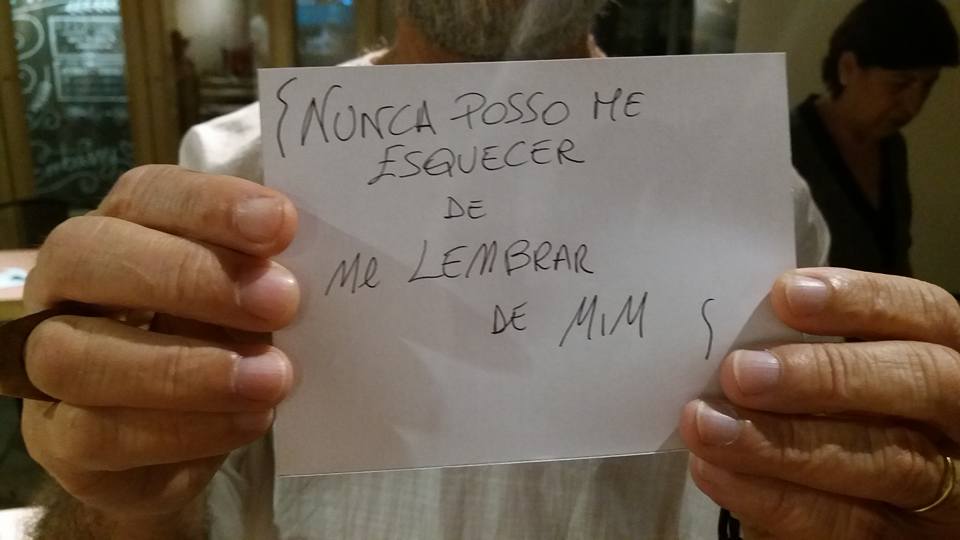 { NUNCA POSSO ME
ESQUECER
DE
Me LEMBRAR
DE MIM }